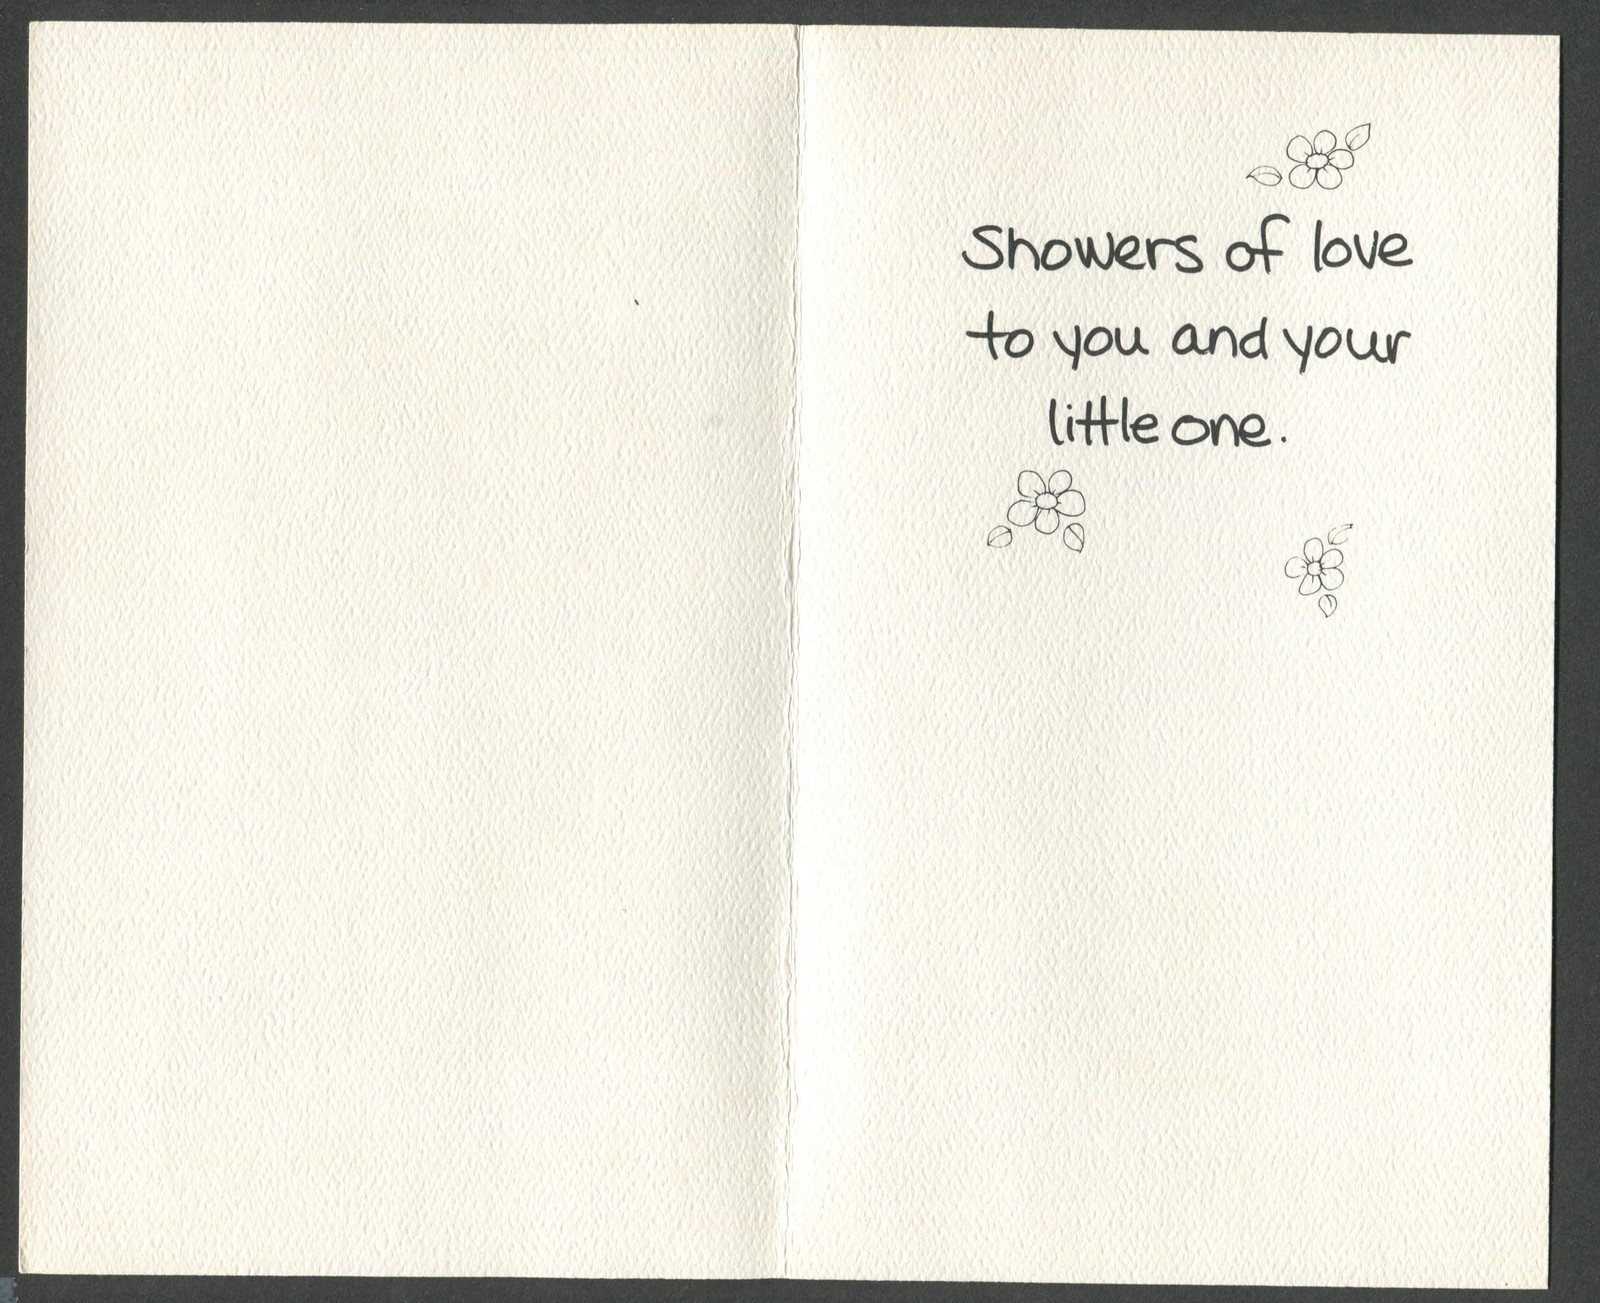 Showers of love
to you and your
little one.